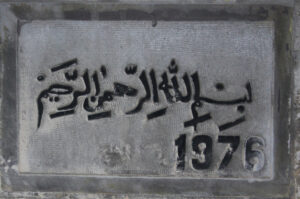 بسم الله الرحمن الرحيم
1976